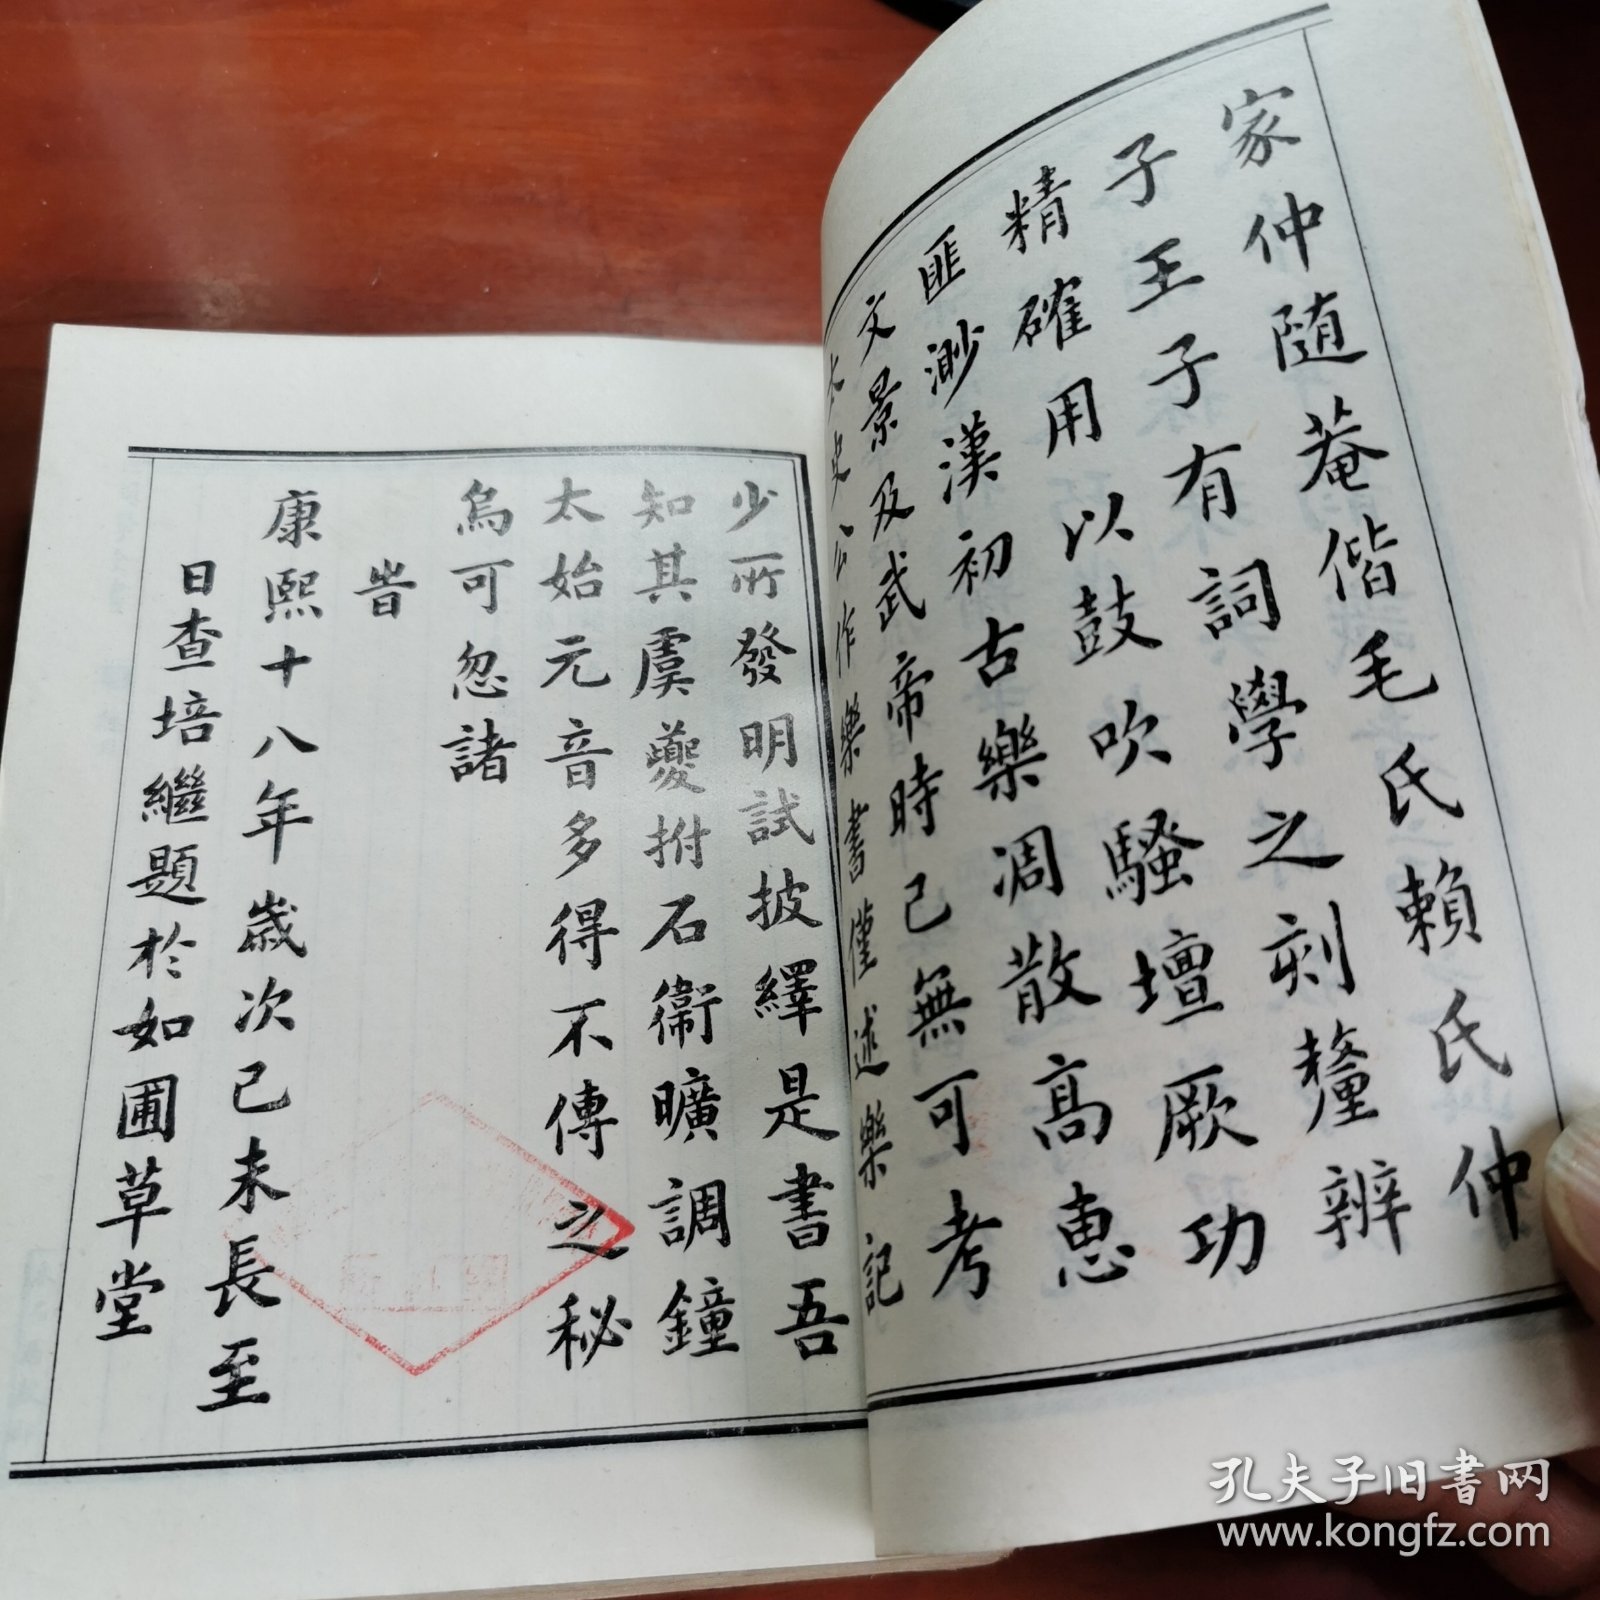 家仲随菴偕毛氏賴氏仲
子王子有詞學之刻釐辨
精確用以鼓吹騷壇厥功
匪渺漢初古樂凋散高惠
文景及武帝時已無可考
太史公作樂書僅述樂記
少所發明試披繹是書吾
知其虞夔拊石衛曠調鐘
太始元音多得不傳之秘
烏可忽諸
旹
康熙十八年歲次己未長至
日查培繼題於如圃草堂
孔夫子旧书网
www.kongfz.com